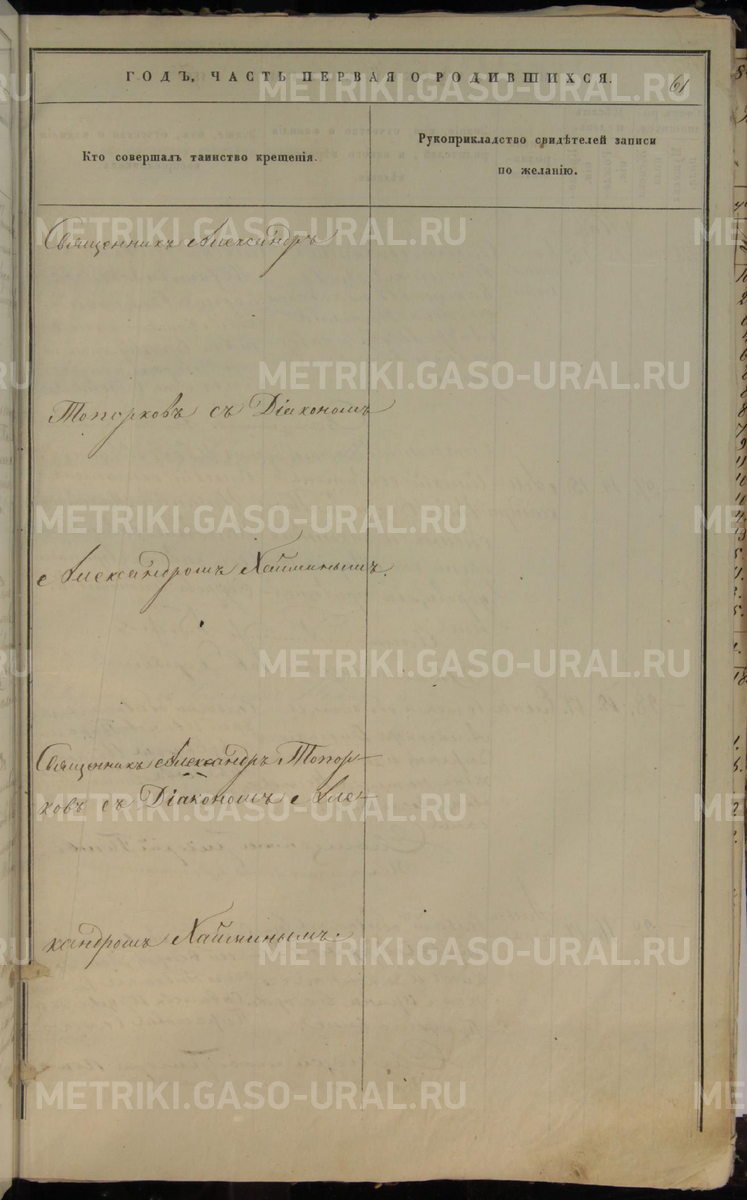 ГОДЪ, ЧАСТЬ ПЕРВАЯ О РОДИВШИХСЯ.
61
Кто совершалъ таинство крещенія.
Рукоприкладство свидѣтелей записи
по желанію.
Священникъ Александръ
Топорковъ съ Діакономъ
Александромъ Хайминымъ.
Священникъ Александръ Топор-
ковъ съ Діакономъ Але-
ксандромъ Хайминымъ.
METRIKI.GASO-URAL.RU